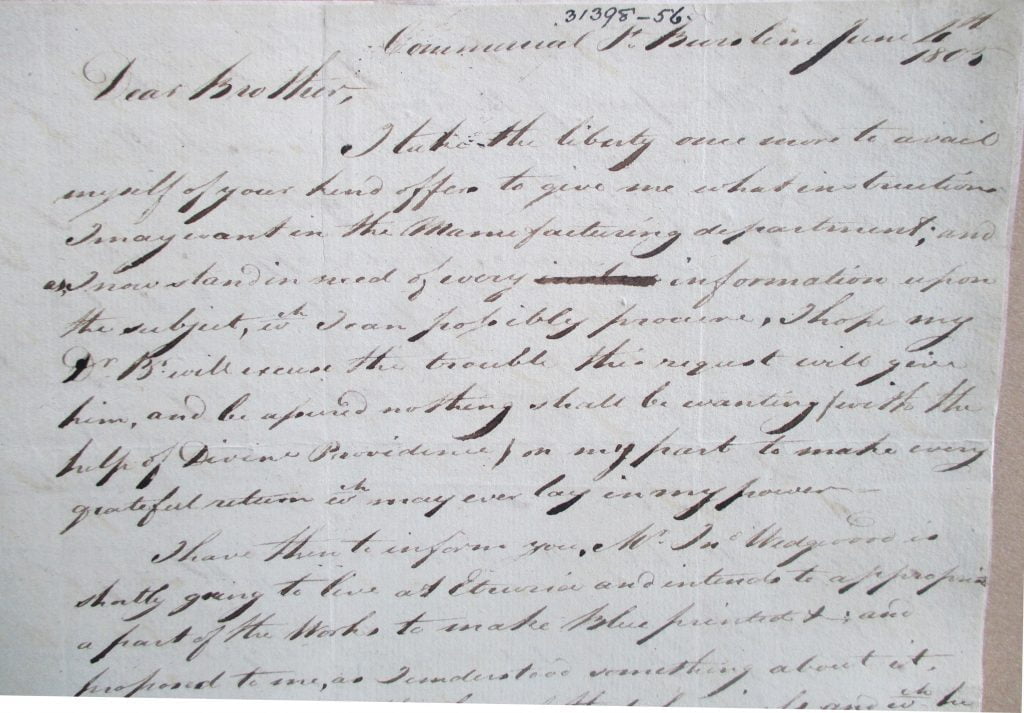 31398-56.
Commercial St. Burslem June 4th
1805
Dear Brother,
I take the liberty once more to avail
myself of your kind offer to give me what instructions
I may want in the Manufacturing department; and
as I now stand in need of every information upon
the subject, wh I can possibly procure, I hope my
Dr. Br. will excuse the trouble this request will give
him, and be assured nothing shall be wanting (with the
help of Divine Providence) on my part to make every
grateful return wh may ever lay in my power—
I have then to inform you, Mr. Jno Wedgwood is
shortly going to live at Etruria and intends to appropri
a part of the Works to make Blue printed &; and
proposed to me, as I understood something about it,
and wh he